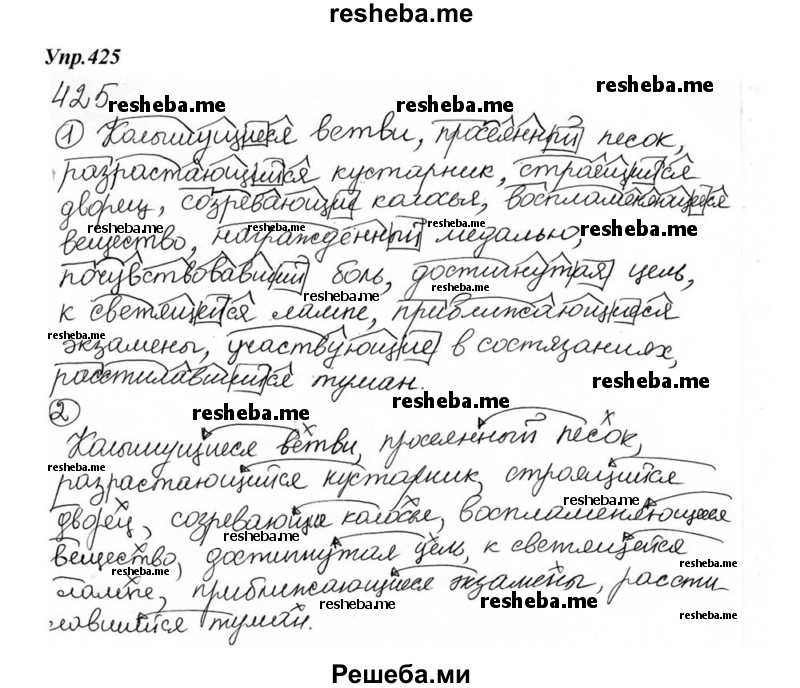 resheba.me
Упр.425
resheba.me
425 resheba.me resheba.me
1 Колышущиеся ветви, просеянный песок,
разрастающийся кустарник, строящийся
дворец, созревающие колосья, воспламеняющееся
resheba.me resheba.me resheba.me resheba.me
вещество, награждённый медалью,
почувствовавший боль, достигнутая цель,
resheba.me resheba.me
к светящейся лампе, приближающиеся
resheba.me
экзамены, участвующие в состязаниях,
расстилавшийся туман.
resheba.me
2 resheba.me resheba.me
Колышущиеся ветви, просеянный песок,
resheba.me
разрастающийся кустарник, строящийся
resheba.me
дворец, созревающие колосья, воспламеняющееся
resheba.me
вещество, достигнутая цель, к светящейся
resheba.me resheba.me
лампе, приближающиеся экзамены, рассти-
resheba.me resheba.me
лавшийся туман.
resheba.me
Решеба.ми